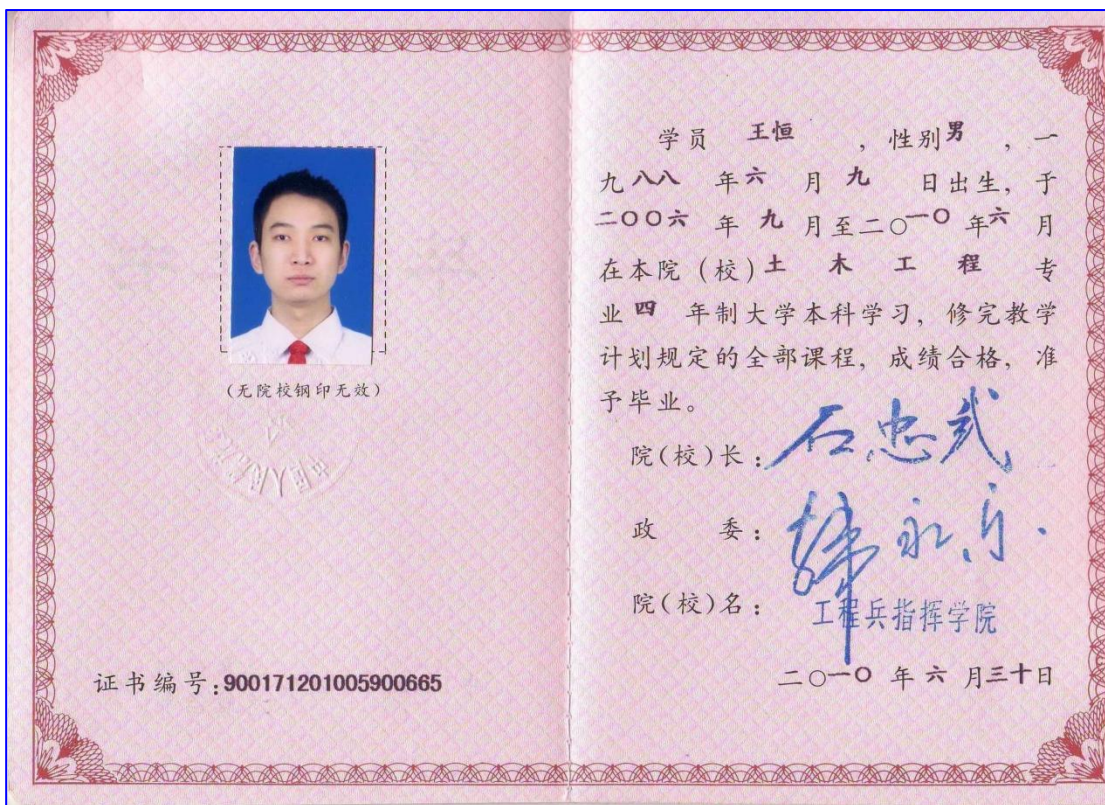 (无院校钢印无效)
证书编号:900171201005900665
学员 王恒 ,性别男 ,一
九八八 年六 月 九 日出生,于
二〇〇六 年 九 月至二〇一〇 年六 月
在本院(校)土 木 工 程 专
业四 年制大学本科学习,修完教学
计划规定的全部课程,成绩合格,准
予毕业。
院(校)长:石忠武
政 委:
院(校)名:工程兵指挥学院
二〇一〇 年 六 月三十日